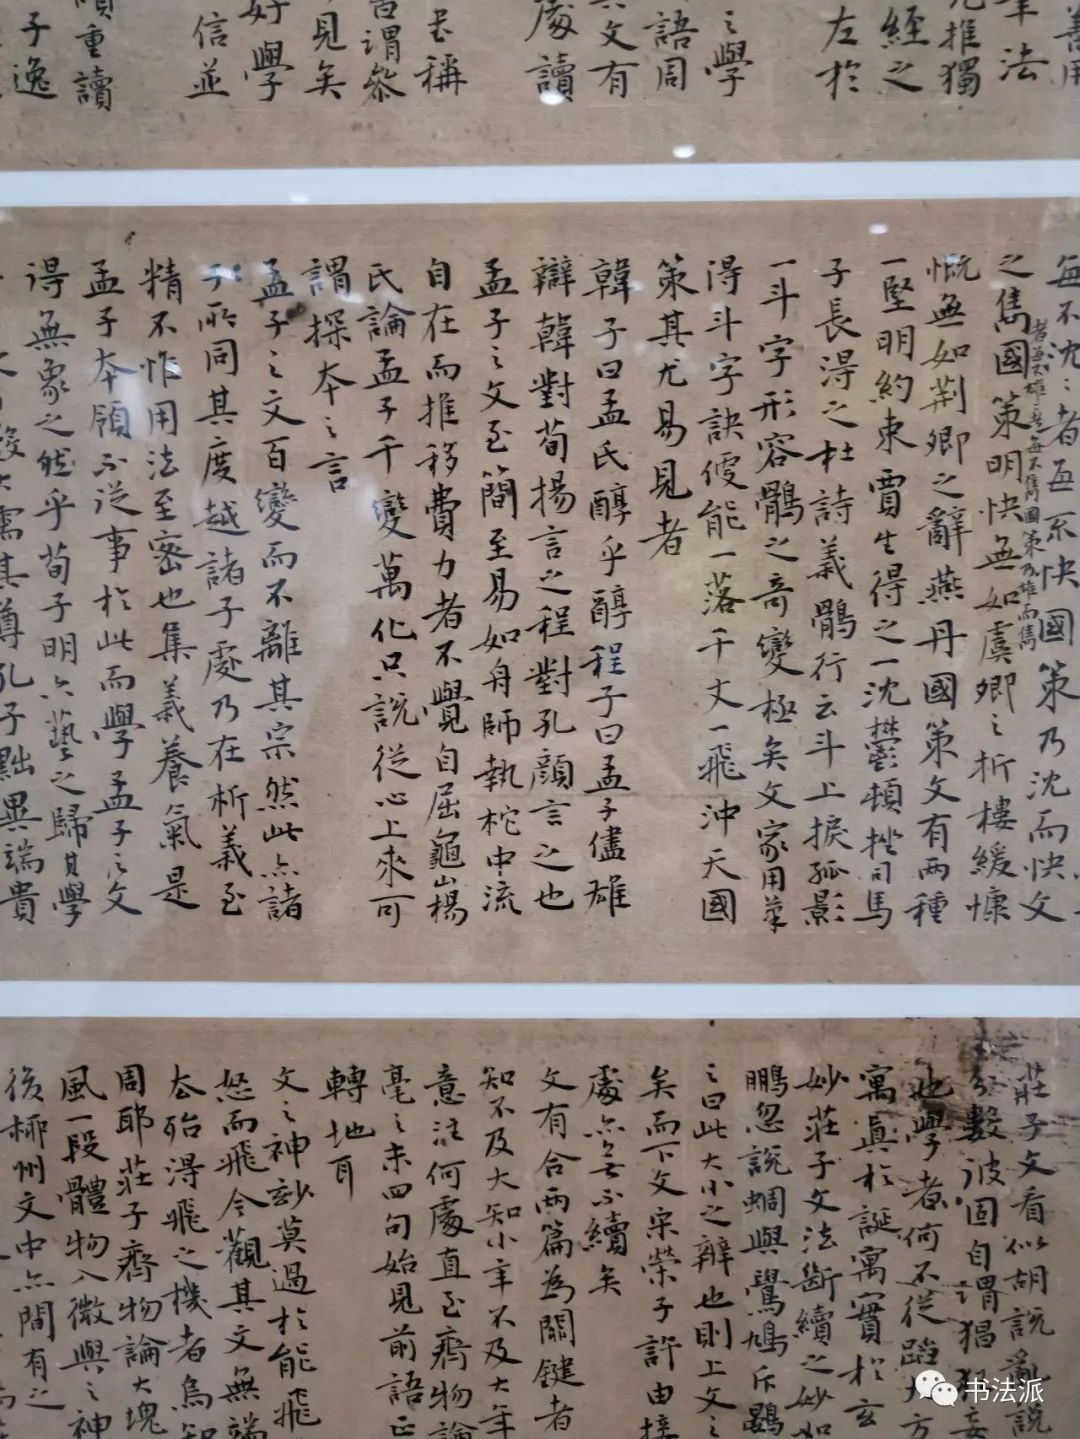 善用
筆法
尤推獨
經之
左於
之學
語周
文有
處讀
玄稱
昔謂參
見矣
好學
信並
頌重讀
子逸
每不沈：者每不快國策乃沈而快文
之雋國策明快無如虞卿之折樓緩慷
慨無如荊卿之辭燕丹國策文有兩種
一堅明約束賈生得之一沈鬱頓挫司馬
子長得之杜詩義鶻行云斗上捩孤影
一斗字形容鶻之奇變極矣文家用筆
得斗字訣便能一落千丈一飛沖天國
策其尤易見者
韓子曰孟氏醇乎醇程子曰孟子儘雄
辯韓對荀揚言之程對孔顏言之也
孟子之文至簡至易如舟師執柁中流
自在而推移費力者不覺自屈龜山楊
氏論孟子千變萬化只說從心上來可
謂探本之言
孟子之文百變而不離其宗然此亦諸
子所同其度越諸子處乃在析義至
精不惟用法至密也集義養氣是
孟子本領不從事於此而學孟子之文
得無象之然乎荀子明六藝之歸其學
其尊孔子黜異端貴
莊子文看似胡說亂說
分數彼固自謂猖狂妄
也學者何不從蹈大方
寓真於誕寓實於玄
妙莊子文法斷續之妙如
鵬忽說蜩與鷽鳩斥鷃
之曰此大小之辨也則上文之
矣而下文宋榮子許由接
處亦無不續矣
文有合兩篇為關鍵者
知不及大知小年不及大年
意注何處直至齊物論
毫之末四句始見前語正
轉地耳
文之神妙莫過於能飛
怒而飛今觀其文無端
太殆得飛之機者烏知
周耶莊子齊物論大塊
風一段體物入微與之神
後柳州文中亦間有之
书法派